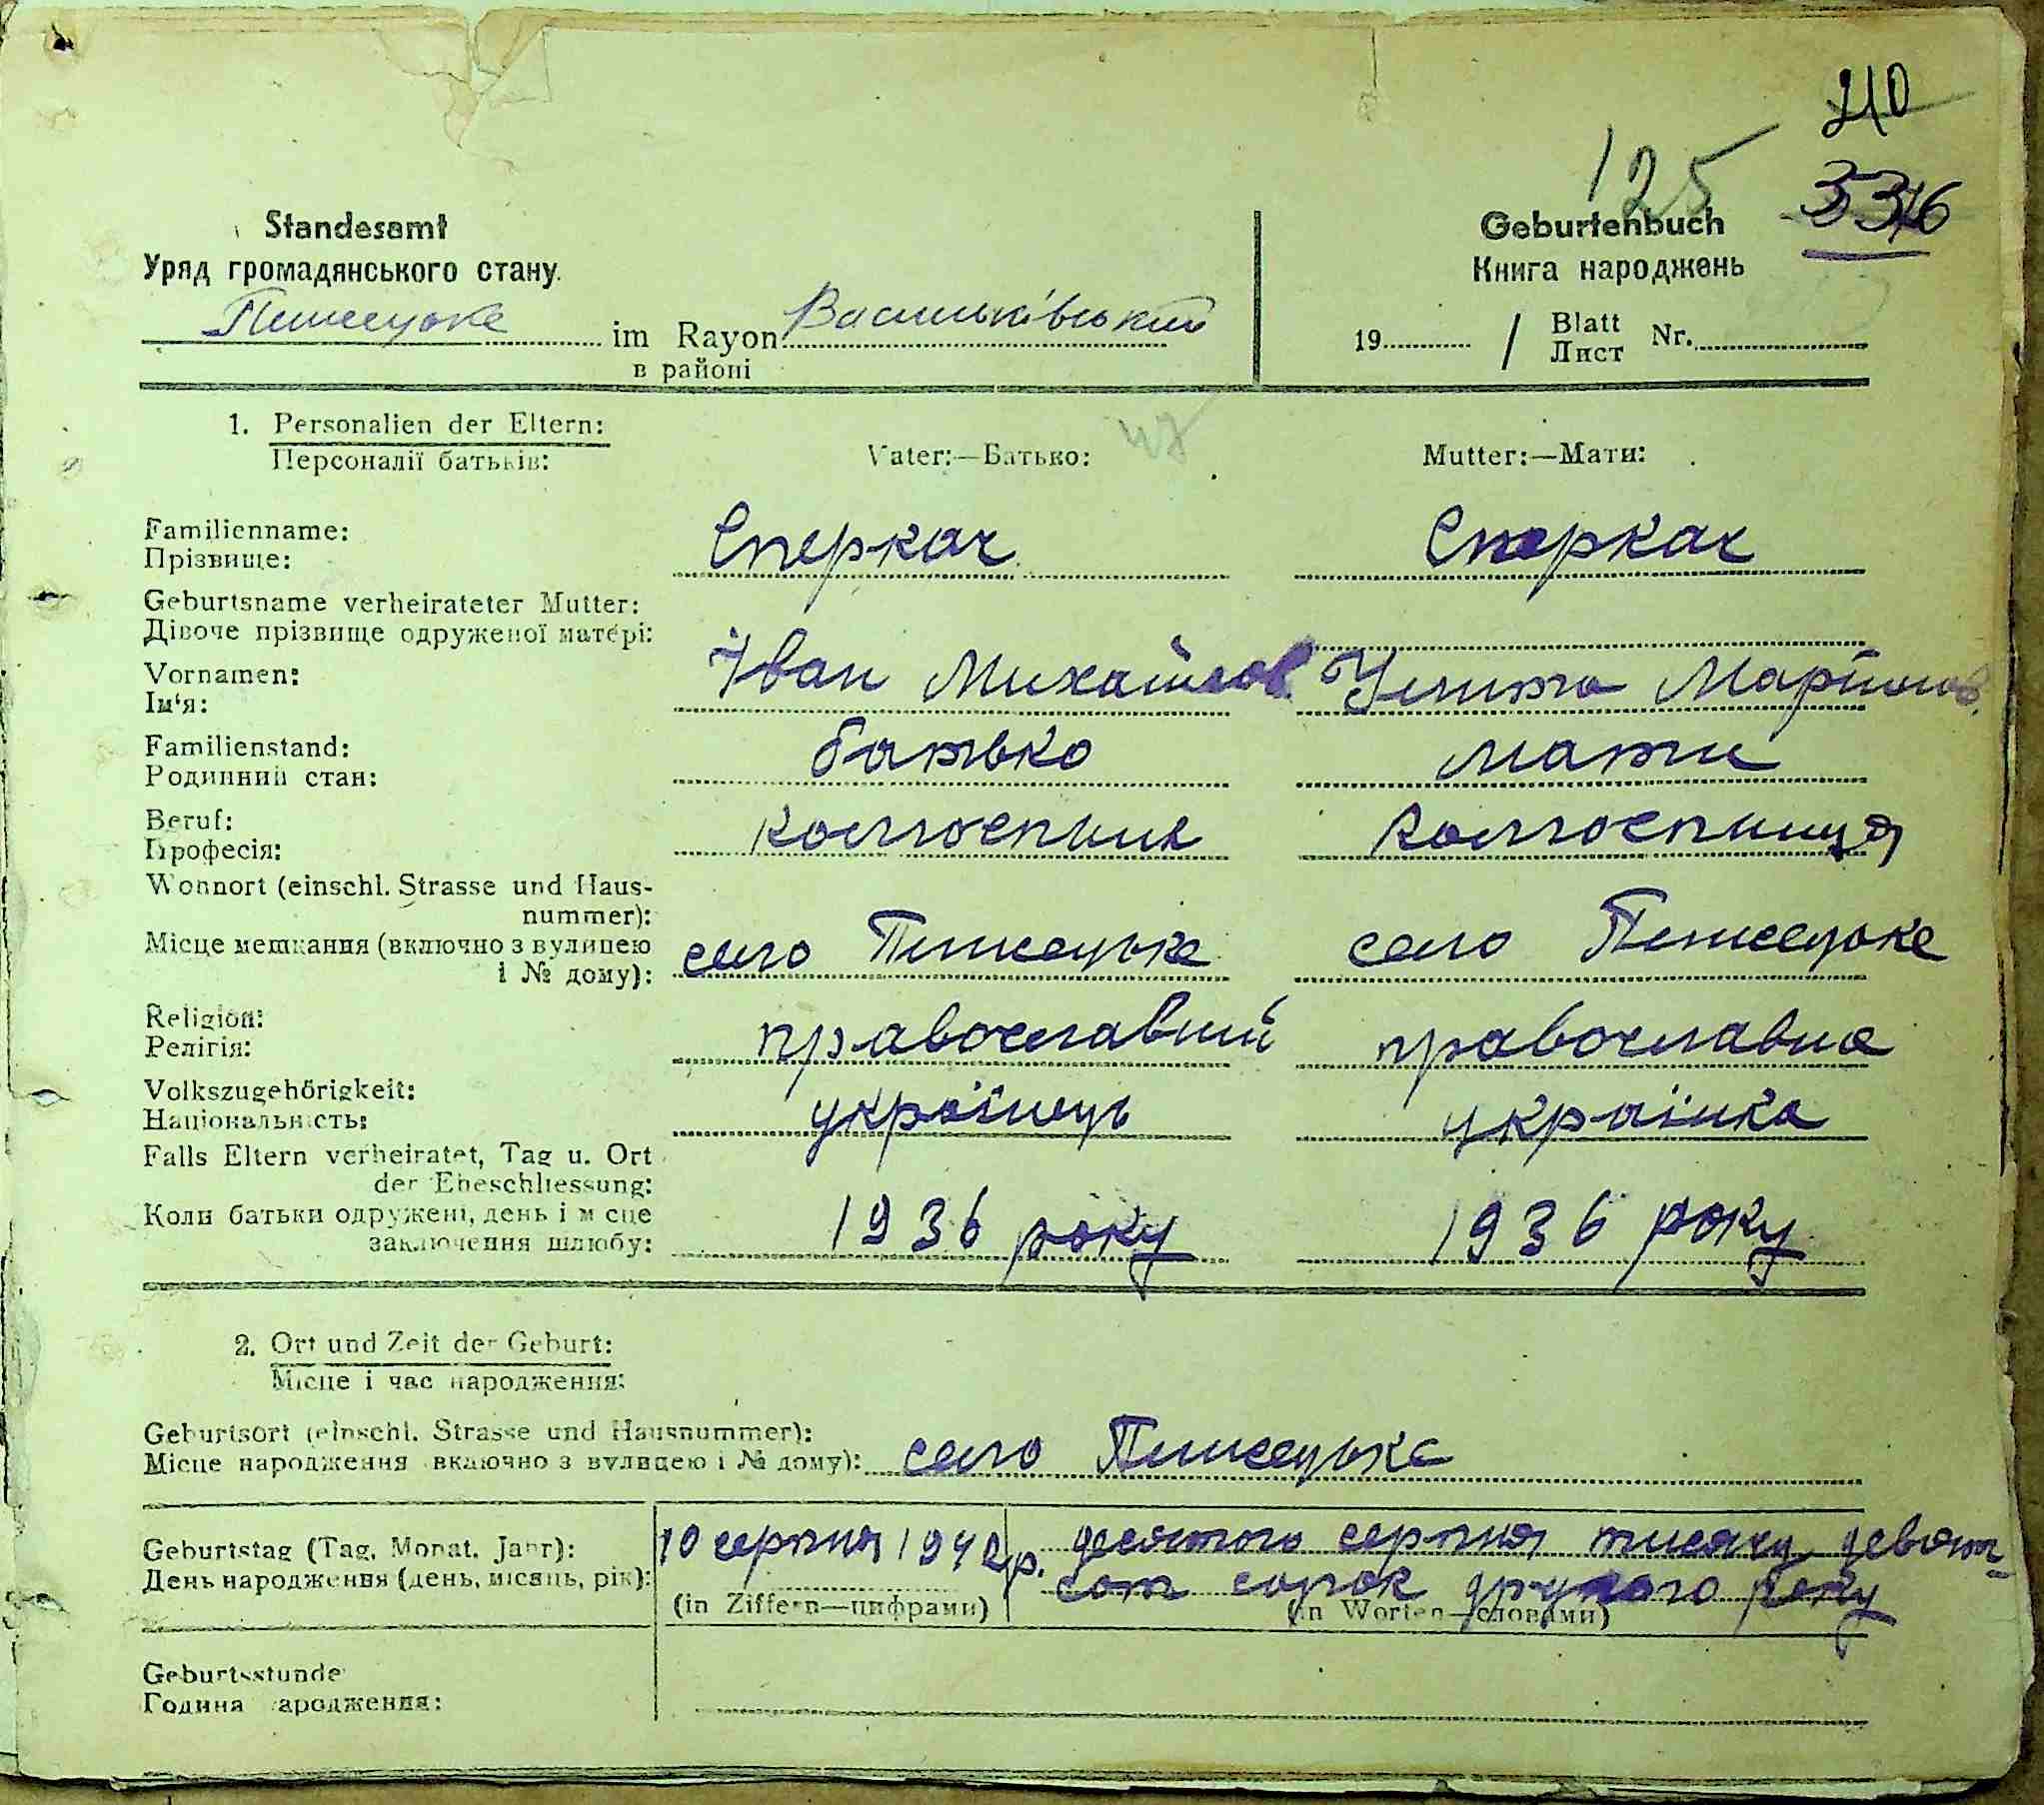 210
125
3376
Standesamt
Уряд громадянського стану.
Пинчуки im Rayon Васильківський
в районі
Geburtenbuch
Книга народжень
19 / Blatt Nr.
Лист
1. Personalien der Eltern:
Персоналії батьків:
Vater:—Батько:
Mutter:—Мати:
Familienname:
Прізвище:
Сперкач
Сперкач
Geburtsname verheirateter Mutter:
Дівоче прізвище одруженої матері:
Vornamen:
Ім'я:
Іван Михайлов.
Улита
Familienstand:
Родинний стан:
батько
мати
Beruf:
Професія:
колгоспник
колгоспниця
Wohnort (einschl. Strasse und Haus-
nummer):
Місце мешкання (включно з вулицею
і № дому):
село
село
Religion:
Релігія:
православний
православна
Volkszugehörigkeit:
Національність:
українець
українка
Falls Eltern verheiratet, Tag u. Ort
der Eheschliessung:
Коли батьки одружені, день і місце
заключення шлюбу:
1936 року
1936 року
2. Ort und Zeit der Geburt:
Місце і час народження:
Geburtsort (einschl. Strasse und Hausnummer):
Місце народження включно з вулицею і № дому):
село
Geburtstag (Tag, Monat, Jahr):
День народження (день, місяць, рік):
10 серпня 1942 р.
десятого серпня тисяча девят-
сот сорок другого року
(in Ziffern—цифрами)
(in Worten—словами)
Geburtsstunde
Година народження: